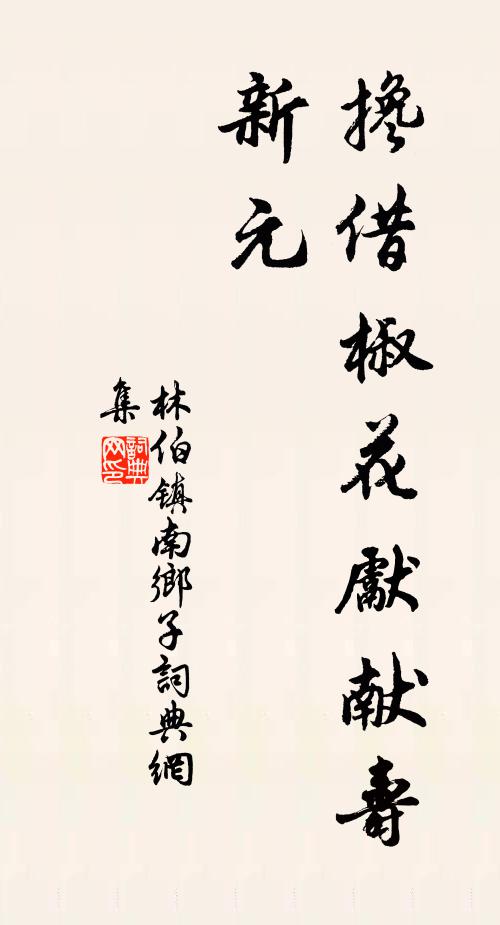 搀借椒花獻献壽
新元
林伯镇南鄉子詞典網
集
詞典網印